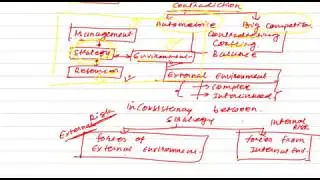 Contradiction
Automobile Big Competitor
Management
Contradictory
Conflict
Strategy Environment Balance
Resources External Environment
Complex
Interlinked
inconsistency between
External Risk Strategy Internal Risk
forces of forces from
External Environment Internal Env.